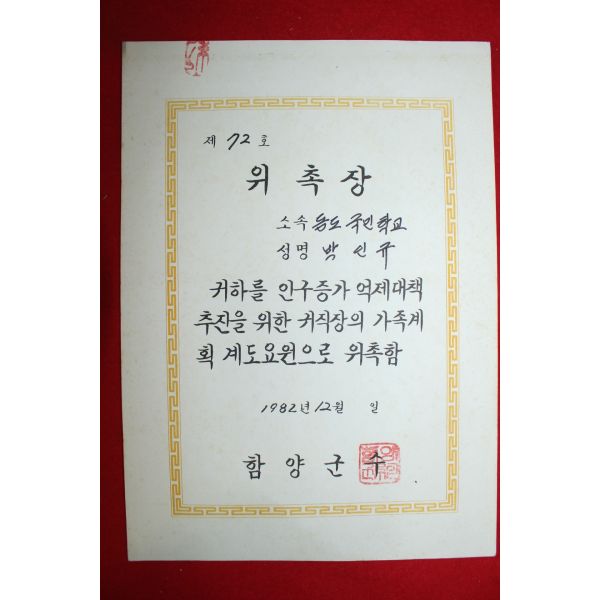 제 72 호
위 촉 장
소속 능도 국민학교
성명 박 인 규
귀하를 인구증가 억제대책
추진을 위한 귀직장의 가족계
획 계도요원으로 위촉함
1982년 12월 일
함 양 군 수